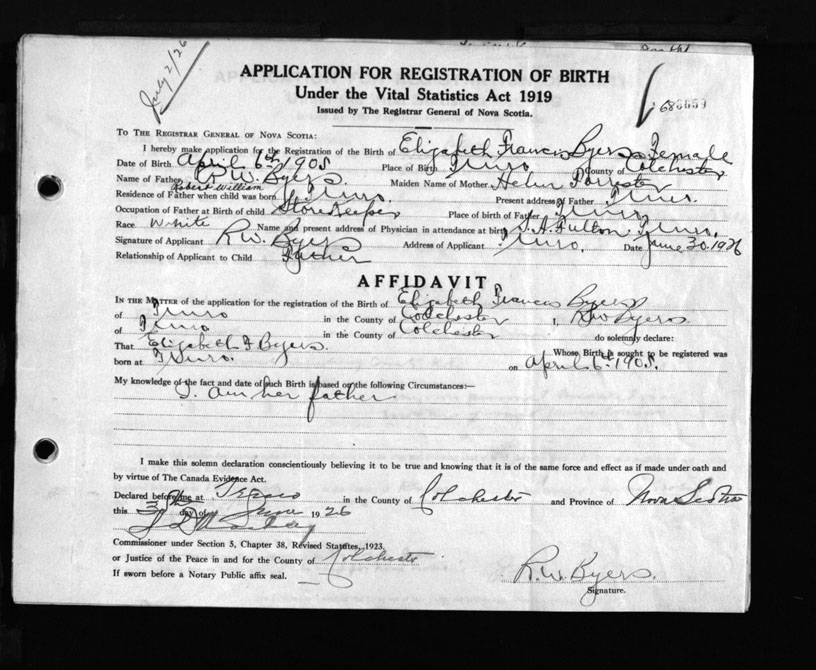 July 2/26
APPLICATION FOR REGISTRATION OF BIRTH
Under the Vital Statistics Act 1919
Issued by The Registrar General of Nova Scotia.
TO THE REGISTRAR GENERAL OF NOVA SCOTIA:
I hereby make application for the Registration of the Birth of Elizabeth Frances Byers Female
Date of Birth April 6th 1908 Place of Birth Truro County of Colchester
Name of Father R W. Byers. Maiden Name of Mother Helen Forrester
Robert William
Residence of Father when child was born Truro. Present address of Father Truro.
Occupation of Father at Birth of child Storekeeper Place of birth of Father Truro
Race White Name and present address of Physician in attendance at birth S. A. Fulton Truro.
Signature of Applicant R.W. Byers Address of Applicant Truro. Date June 30. 1926
Relationship of Applicant to Child Father
AFFIDAVIT
IN THE MATTER of the application for the registration of the Birth of Elizabeth Frances Byers
of Truro in the County of Colchester I, R.W Byers.
of Truro in the County of Colchester do solemnly declare:
That Elizabeth F Byers. Whose Birth is sought to be registered was
born at Truro. on April 6th 1908.
My knowledge of the fact and date of such Birth is based on the following Circumstances:—
I. am her father
I make this solemn declaration conscientiously believing it to be true and knowing that it is of the same force and effect as if made under oath and
by virtue of The Canada Evidence Act.
Declared before me at Truro in the County of Colchester and Province of Nova Scotia
this 30th day of June 1926
Commissioner under Section 5, Chapter 38, Revised Statutes, 1923,
or Justice of the Peace in and for the County of Colchester
If sworn before a Notary Public affix seal.
R.W. Byers.
Signature.